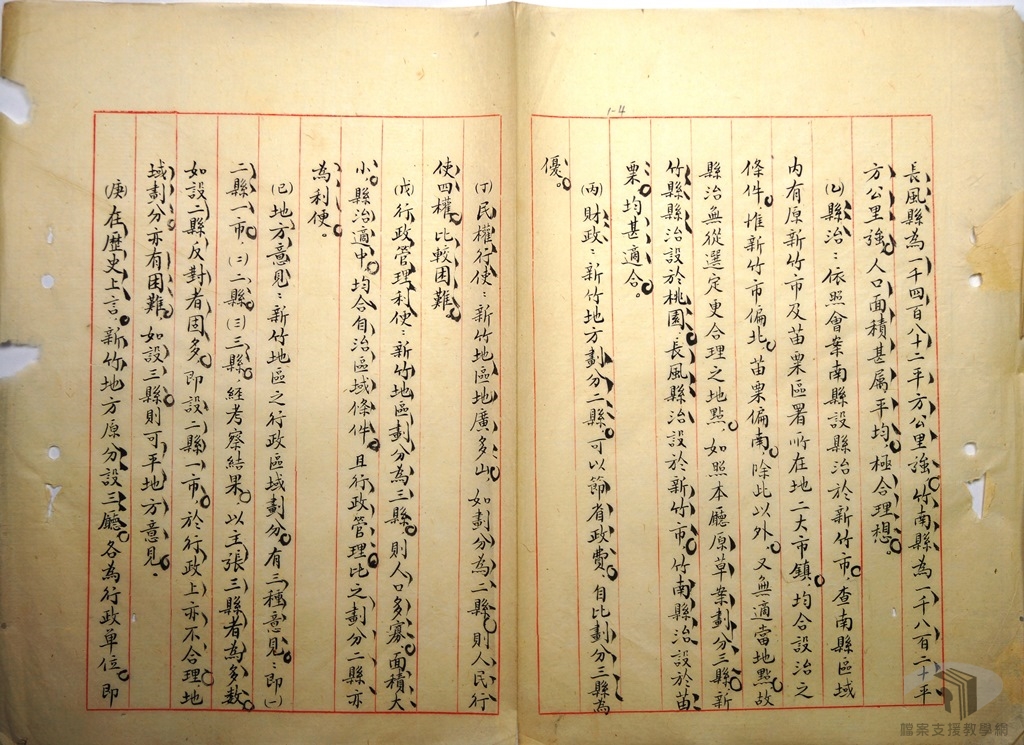 1-4
長風縣為一千四百八十二平方公里強，竹南縣為一千八百二十平
方公里強。人口面積甚屬平均，極合理想。
(乙)縣治：依照會案南縣設縣治於新竹市。查南縣區域
內有原新竹市及苗栗區署所在地二大市鎮，均合設治之
條件，惟新竹市偏北，苗栗偏南，除此以外，又無適當地點，故
縣治無從選定更合理之地點。如照本廳原草案劃分三縣，新
竹縣縣治設於桃園，長風縣治設於新竹市，竹南縣治設於苗
栗，均甚適合。
(丙)財政：新竹地方劃分二縣，可以節省政費，自比劃分三縣為
優。
(丁)民權行使：新竹地區地廣多山，如劃分為二縣，則人民行
使四權，比較困難。
(戊)行政管理利便：新竹地區劃分為三縣，則人口多寡，面積大
小，縣治適中，均合自治區域條件，且行政管理比之劃分二縣亦
為利便。
(已)地方意見：新竹地區之行政區域劃分，有三種意見：即(一)
二縣一市，(二)二縣，(三)三縣，經考察結果，以主張三縣者為多數，
如設二縣反對者固多，即設二縣一市，於行政上亦不合理，地
域劃分亦有困難，如設三縣則可平地方意見。
(庚)在歷史上言，新竹地方原分設三廳，各為行政單位，即
檔案支援教學網